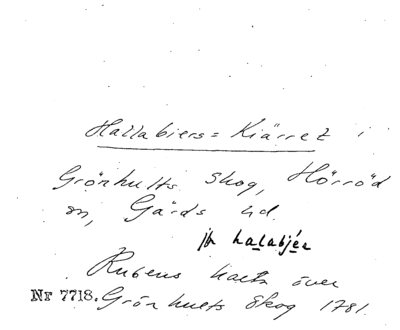 Hallabiers=Kiärret i
Grönhults skog, Hörröd
sn, Gärds hd.
jfr halabjär
Rubens karta över
Nr 7718. Grönhults skog 1781.